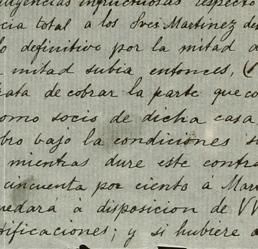 ligencias infructuosas respecto
cia total á los Sres Martinez de
o definitivo por la mitad d
mitad subia entonces, (
rata de cobrar la parte que co
omo socio de dicha casa,
bro bajo la condiciones si
mientras dure este contra
cincuenta por ciento á Mar
uedara á disposicion de VV
rificaciones; y si hubiere a